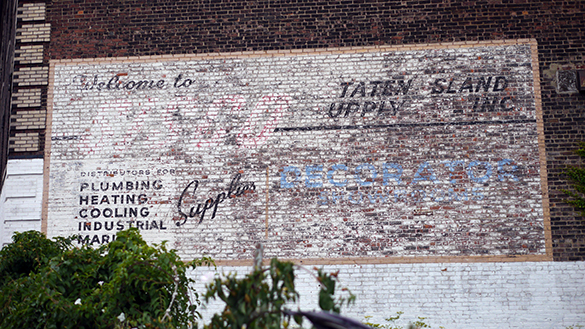 Welcome to
TATEN SLAND
UPPLY INC
DISTRIBUTORS FOR
PLUMBING
HEATING
COOLING
INDUSTRIAL
MARI
Supplies
DECORATOR